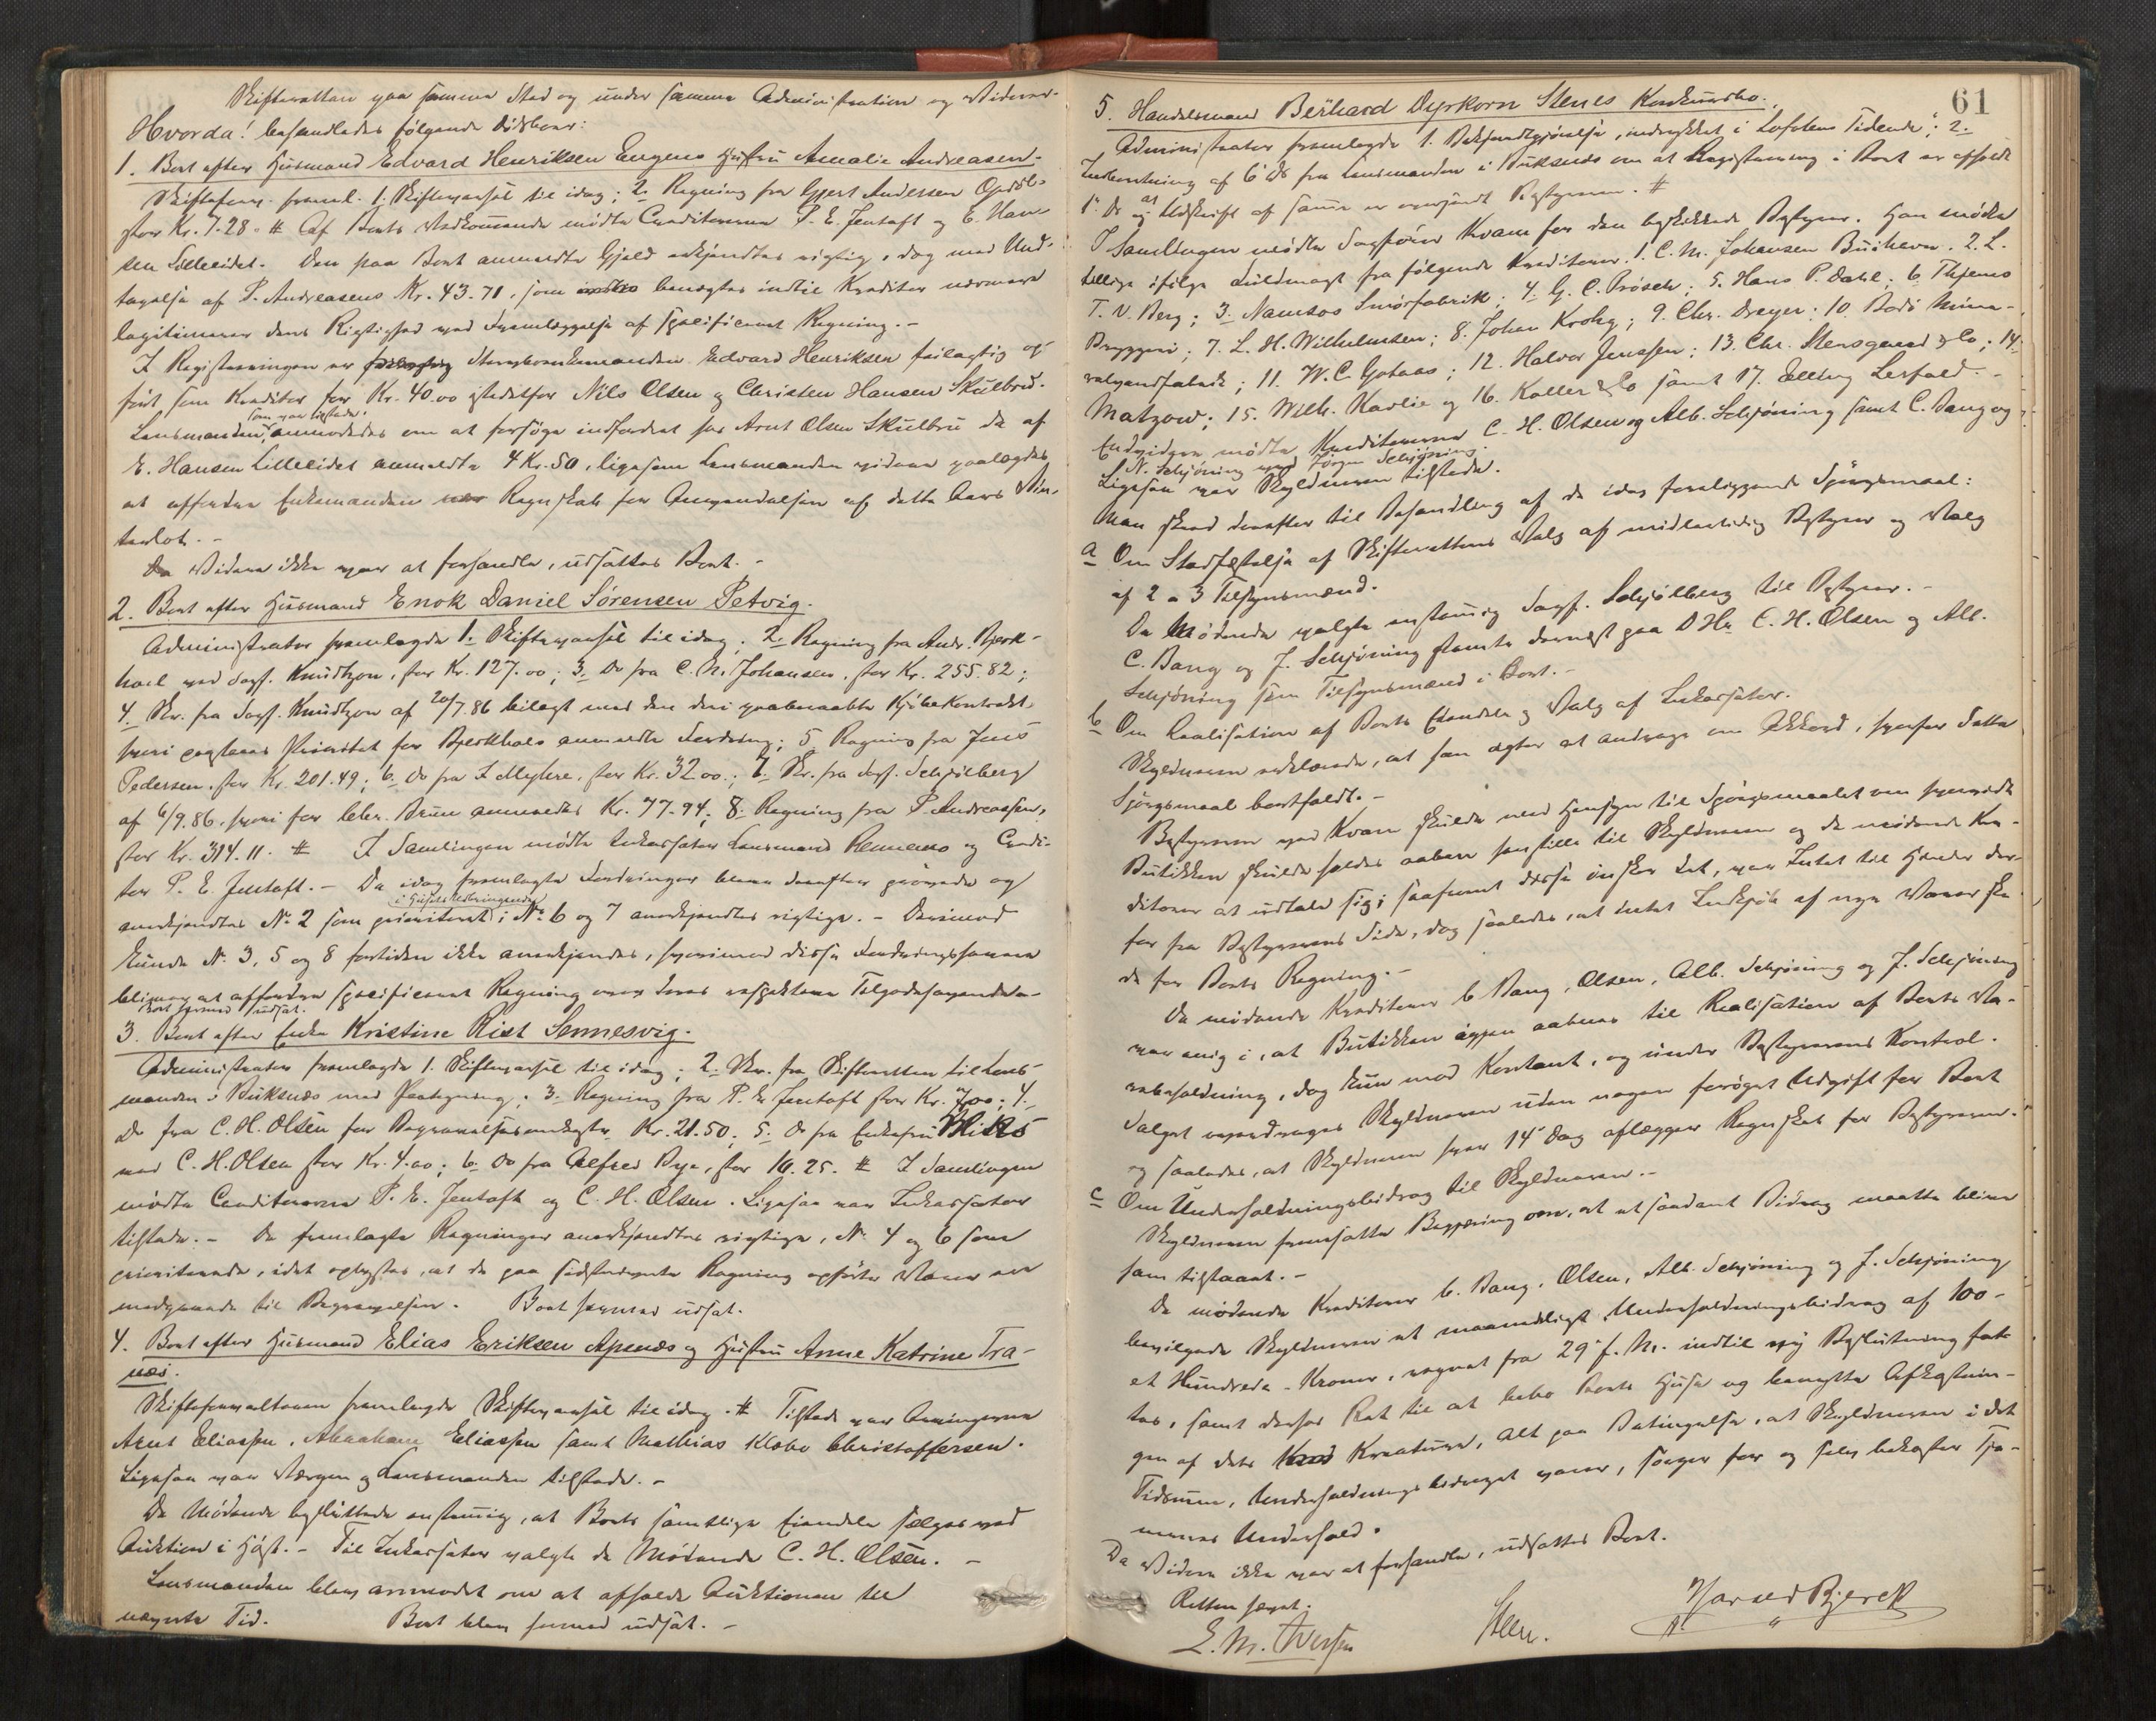 Skifteretten paa samme Sted og under samme Administration og Vidner.
Hvorda! behandledes følgende Dødsboer:
1. Boet efter Husmand Edvard Henriksen Eugens Hustru Amalie Andreasen.
Skifteforv. freml. 1. Skiftevarsel til idag; 2. Regning fra Gjert Andersen Opdøl
stor Kr. 7.28. # Af Boets Vedkommende mødte Creditorerne P. E. Jentoft og E. Han-
sen Lilleeidet. Den paa Boet anmeldte Gjæld erkjendtes rigtig, dog med Und-
tagelse af P. Andreasens Kr. 43.71, som benegtes indtil Kreditor nærmere
legitimerer dens Rigtighed ved Fremlæggelse af specificeret Regning.-
I Registreringen er Sterbboenkemanden Edvard Henriksen feilagtig op-
ført som Kreditor for Kr. 40.00 istedetfor Nils Olsen og Christen Hansen Skulbru.
som var tilstede,
Lensmanden anmodedes om at forsøge indfordret hos Arnt Olsen Skulbru de af
E. Hansen Lilleeidet anmeldte 4 Kr. 50, ligesom Lensmanden videre paalagdes
at affordre Enkemanden Regnskab for Anvendelsen af dette Aars Vin-
terlot.-
Da Videre ikke var at forhandle, udsattes Boet.-
2. Boet efter Husmand Enok Daniel Sørensen Petvig.
Administrator fremlagde 1. Skiftevarsel til idag; 2. Regning fra Andr. Bjerk-
hoel ved Sagf. Knudtzon, stor Kr. 127.00; 3. Do fra C. M. Johansen, stor Kr. 255.82;
4. Skr. fra Sagf. Knudtzon af 20/7.86 bilagt med den deri paaberaabte Kjøbekontrakt
hvori paastaaes Prioritet for Bjerkhoels anmeldte Fordring; 5 Regning fra Jens
Pedersen, stor Kr. 201.49; 6. Do fra I. Myhre, stor Kr. 32.00; 7. Skr. fra Sagf. Schjelberg
af 6/9.86, hvori for Chr. Bruun anmeldes Kr. 77.94; 8. Regning fra P. Andreassen,
stor Kr. 314.11. # I Samlingen mødte Inkassator Lensmand Rennemo og Credi-
tor P. E. Jentoft.- De idag fremlagte Fordringer bleve derefter prøvede og
i Husets Udbringende
anerkjendtes No 2 som prioriteret; No 6 og 7 anerkjendtes rigtige.- Derimod
kunde No 3, 5 og 8 fortiden ikke anerkjendes, hvorimod disse Fordringshavere
bliver at affordre specificeret Regning over deres respektive Tilgodehavende.-
Boet hermed udsat.
3. Boet efter Enke Kristine Rist Sennesvig.
Administrator fremlagde 1. Skiftevarsel til idag; 2. Skr. fra Skifteretten til Lens-
manden i Buksnes med Paategning; 3. Regning fra P. E. Jentoft stor Kr. 7.00; 4.
Do fra C. H. Olsen for Begravelsesomkostn. Kr. 21.50; 5. Do fra Enkefru Bliks
ved C. H. Olsen stor Kr. 4.00; 6. Do fra Alfred Bye, stor 10.25. # I Samlingen
mødte Creditorerne P. E. Jentoft og C. H. Olsen. Ligesaa var Inkassator
tilstede.- De fremlagte Regninger anerkjendtes rigtige, No 4 og 6 som
prioriterede, idet oplystes, at de paa sidstnævnte Regning opførte Varer var
medgaaede til Begravelsen. Boet hermed udsat.
4. Boet efter Husmand Elias Eriksen Apenæs og Hustru Anne Katrine Tra-
næs.
Skifteforvalteren fremlagde Skiftevarsel til idag. # Tilstede var Arvingerne
Arnt Eliassen, Abraham Eliassen samt Mathias Klæbo Christoffersen.
Ligesaa var Værgen og Lensmanden tilstede.-
De Mødende besluttede enstemmig, at Boets samtlige Eiendele sælges ved
Auktion i Høst.- Til Inkassator valgte de Mødende C. H. Olsen.-
Lensmanden blev anmodet om at afholde Auktionen til
nævnte Tid. Boet blev hermed udsat.-
61
5. Handelsmand Berhard Dyrkorn Stenes Konkursbo.
Administrator fremlagde 1. Bekjendtgjørelse, indrykket i "Lofotens Tidende"; 2.
Indberetning af 6 ds fra Lensmanden i Buksnæs om at Registrering i Boet er afholdt
1. Ds og at Udskrift af samme er oversendt Bestyreren. #
I Samlingen mødte Sagfører Kvam for den beskikkede Bestyrer. Han mødte
tillige ifølge Fuldmagt fra følgende Kreditorer: 1. C. M. Johansen Buchevn. 2. L.
T. V. Berg; 3. Namsos Smørfabrik; 4. G. C. Brøsch; 5. Hans P. Dahl; 6. Thjems
Bryggeri; 7. L. H. Wilhelmsen; 8. Johan Krohg; 9. Chr. Dreyer; 10. Bodø Mine-
ralvandfabrik; 11. W. C. Gotaas; 12. Halvor Jenssen; 13. Chr. Stensgaard & Co; 14.
Matzow; 15. Wilh. Karlie og 16. Koller & Co samt 17. Elling Lerfald.-
Endvidere mødte Kreditorerne C. H. Olsen og Alb. Schjøning samt C. Bang og
N. Schjøning ved Jørgen Schjøning.
Ligesaa var Skyldneren tilstede.
Man skred derefter til Behandling af de idag foreliggende Spørgsmaal:
a Om Stadfæstelse af Skifterettens Valg af midlertidig Bestyrer og Valg
af 2 a 3 Tilsynsmænd.
De Mødende valgte enstemmig Sagf. Schjelberg til Bestyrer.-
C. Bang og J. Schjøning stemte dernæst paa DHr. C. H. Olsen og Alb.
Schjøning som Tilsynsmænd i Boet.-
b Om Realisation af Boets Eiendele og Valg af Inkassator.
Skyldneren erklærede, at han agter at andrage om Akkord, hvorfor dette
Spørgsmaal bortfaldt.-
Bestyreren ved Kvam skulde med Hensyn til Spørgsmaalet om hvorvidt
Butikken skulde holdes aaben henstille til Skyldneren og de mødende Kre-
ditorer at udtale sig; saafremt disse ønsker det, var Intet til Hinder der-
for fra Bestyrerens Side, dog saaledes, at intet Indkjøb af nye Varer ske-
de for Boets Regning.-
De mødende Kreditorer C. Bang, Olsen, Alb. Schjøning og J. Schjøning
var enig i, at Butikken igjen aabnes til Realisation af Boets Va-
rebeholdning, dog kun mod Kontant, og under Bestyrerens Kontrol.
Salget overdrages Skyldneren uden nogen forøget Udgift for Boet
og saaledes, at Skyldneren hver 14de Dag aflægger Regnskab for Bestyreren.
c Om Underholdningsbidrag til Skyldneren.-
Skyldneren fremsatte Begjæring om, at et saadant Bidrag maatte blive
ham tilstaaet.-
De mødende Kreditorer C. Bang, Olsen, Alb. Schjøning og J. Schjøning
bevilgede Skyldneren et maanedligt Underholdningsbidrag af 100-
et Hundrede - Kroner, regnet fra 29 f. M. indtil ny Beslutning fat-
tes, samt derhos Ret til at bebo Boets Huse og benytte Afkastnin-
gen af dets Kreaturer, alt paa Betingelse, at Skyldneren i det
Tidsrum, Underholdningsbidraget varer, sørger for og selv bekoster Tje-
nernes Underhold.
Da Videre ikke var at forhandle, udsattes Boet.
Retten hævet.
E. M. Iversen Steen. Harald Bjerck